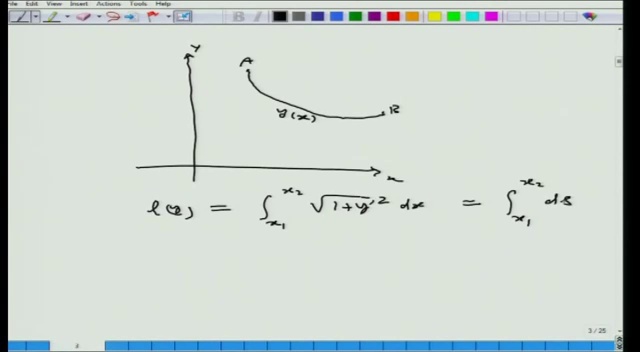 File Edit View Insert Actions Tools Help
Y
A
y(x)
B
x
l(y) = ∫_{x_1}^{x_2} √1+y'^2 dx = ∫_{x_1}^{x_2} ds
3 / 25